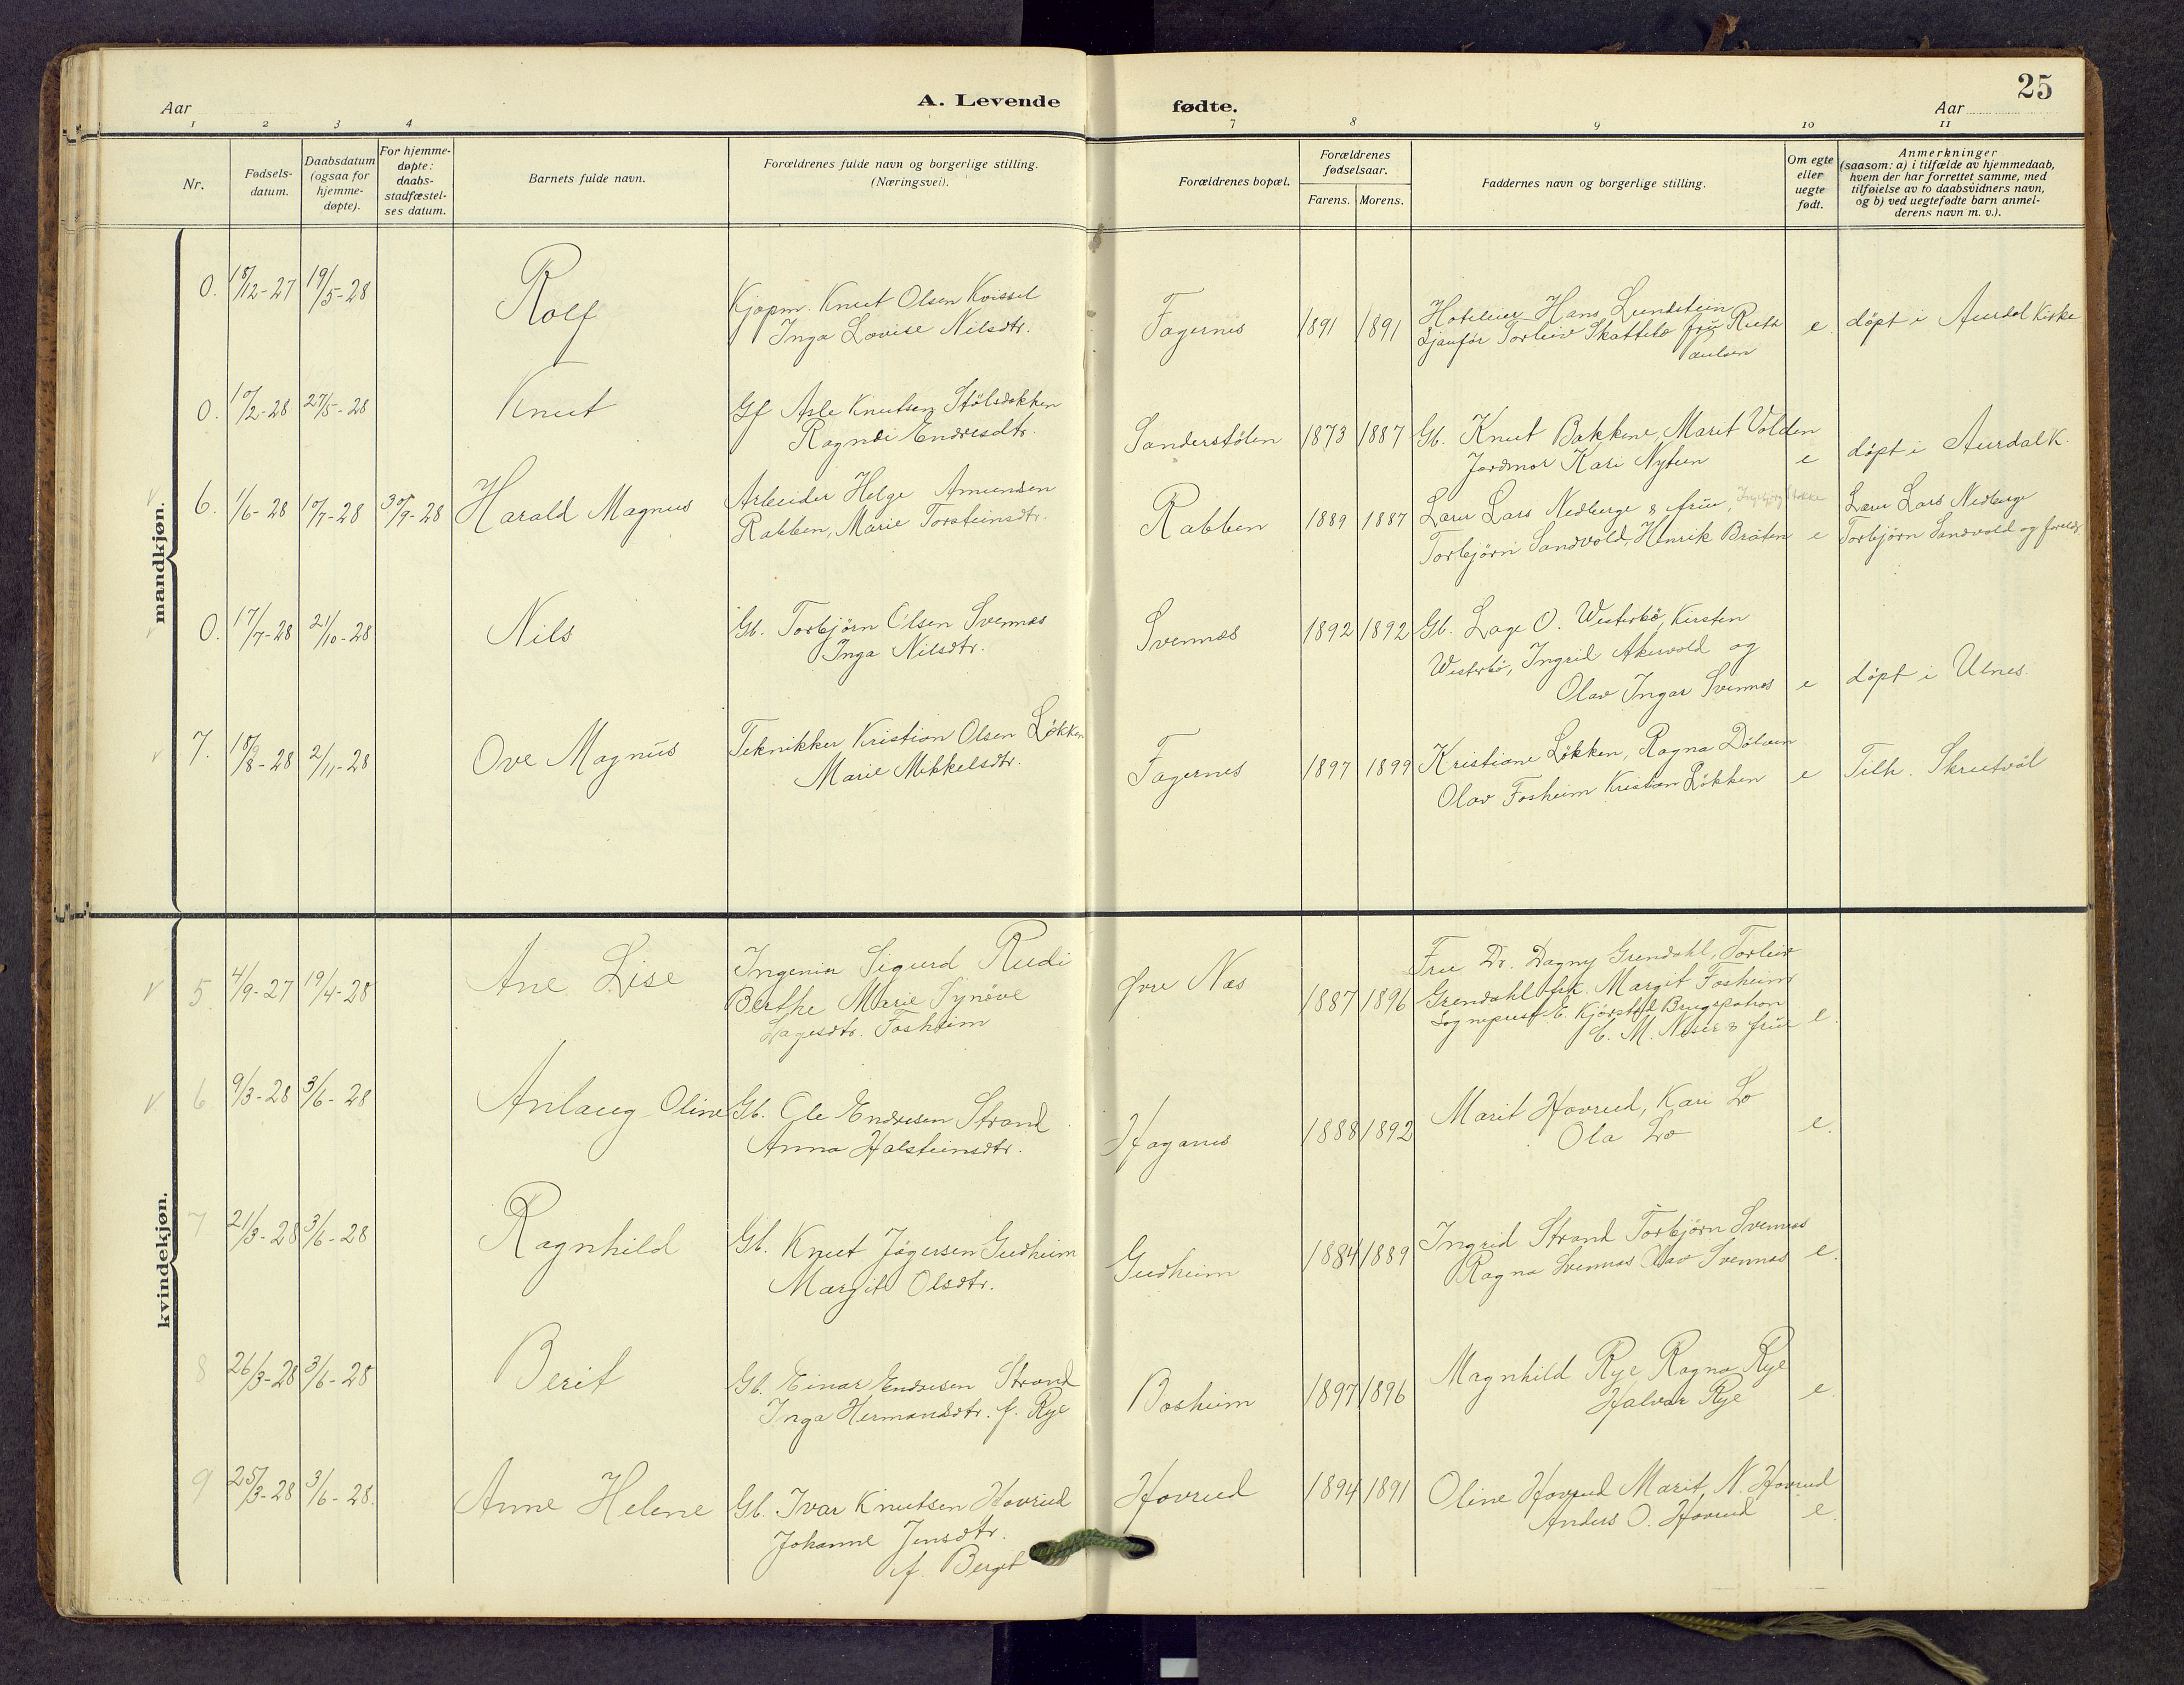 Aar
A. Levende
fødte.
Aar
25
1 2 3 4 7 8 9 10 11
Nr.
Fødsels-
datum.
Daabsdatum
(ogsaa for
hjemme-
døpte).
For hjemme-
døpte:
daabs-
stadfæstel-
ses datum.
Barnets fulde navn.
Forældrenes fulde navn og borgerlige stilling.
(Næringsvei).
Forældrenes bopæl.
Forældrenes
fødselsaar.
Farens. Morens.
Faddernes navn og borgerlige stilling.
Om egte
eller
uegte
født.
Anmerkninger
(saasom: a) i tilfælde av hjemmedaab,
hvem der har forrettet samme, med
tilføielse av to daabsvidners navn,
og b) ved uegtefødte barn anmel-
derens navn m. v.).
mandkjøn.
0. 18/12-27 19/5-28 Rolf
Kjøpm. Knut Olsen Kvissel
Inga Lovise Nilsdtr.
Fagernes 1891 1891
Hotelier Hans Lundstein
Sjaufør Torleiv Skattebo frü Ruth
Paulsen
e. døpt i Aurdal Kirke
0. 10/2-28 27/5-28 Knut
Gf Asle Knutsen Stölsdokken
Ragndi Endresdtr.
Sanderstølen 1873 1887
Gb. Knut Bakkene, Marit Volden
Jordmor Kari Nytun
e døpt i Aurdal K.
6. 1/6-28 10/7-28 30/9-28 Harald Magnus
Arbeider Helge Amundsen
Rabben, Marie Torsteinsdtr.
Rabben 1889 1887
Lærer Lars Nedberge & früe, Ingebjørg Stokke
Torbjörn Sandvold, Henrik Bråten e
Lærer Lars Nedberge
Torbjörn Sandvold og foreldr.
0. 17/7-28 21/10-28 Nils
Gb. Torbjörn Olsen Svennes
Inga Nilsdtr.
Svennes 1892 1892
Gb. Lage O. Westerbö, Kirsten
Westerbö, Ingrid Akervold og
Olav Ingar Svennes
e døpt i Ulnes.
7. 18/8-28 2/11-28 Ove Magnüs
Teknikker Kristian Olsen Løkken
Marie Mikkelsdtr.
Fagernes 1897 1899
Kristiane Løkken, Ragna Dölven
Olav Fosheim Kristian Løkken
e Tilh. Skrutvål
kvindekjøn.
5. 4/9-27 19/4-28 Ane Lise
Ingeniør Sigurd Rudi
Berthe Marie Synöve
Lagesdtr. Fosheim
Øvre Næs 1887 1896
Frue Dr. Dagny Grendahl, Torleiv
Grendahl frk. Margit Fosheim
Sogneprest E. Kjörstad Brugspatron
C. M. Neser & früe e.
6 9/3-28 3/6-28 Anlaug Oline
Gb. Ole Endresen Strand
Anna Halsteinsdtr.
Haganes 1888 1892
Marit Hovrud, Kari Lo
Ola Lo
e.
7 21/3-28 3/6-28 Ragnhild
Gb. Knut Jögersen Gudheim
Margit Olsdtr.
Gudheim 1884 1889
Ingrid Strand Torbjørn Svennes
Ragna Svennes Olav Svennes e.
8 26/3-28 3/6-28 Berit
Gb. Einar Endresen Strand
Inga Hermandsdtr. f. Rye
Bosheim 1897 1896
Magnhild Rye Ragna Rye
Halvar Rye
e.
9 25/3-28 3/6-28. Anne Helene
Gb. Ivar Knutsen Hovrud
Johanne Jensdtr.
f. Berget
Hovrud 1894 1891
Oline Hovrud Marit N. Hovrud
Anders O. Hovrud
e.